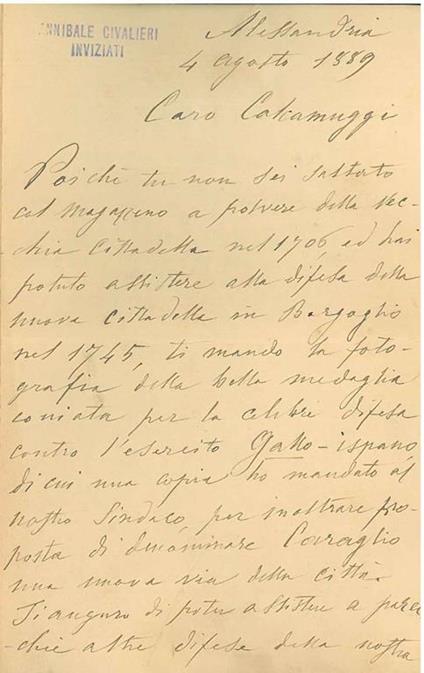 ANNIBALE CIVALIERI
INVIZIATI
Alessandria
4 agosto 1889
Caro Cakamuggi
Poichè tu non sei saltato
col magazzeno a polvere della vec-
-chia Cittadella nel 1706, ed hai
potuto assistere alla difesa della
nuova cittadella in Borgoglio
nel 1745, ti mando la foto-
grafia della bella medaglia
coniata per la celebre difesa
contro l'esercito Gallo-ispano,
di cui una copia ho mandato al
nostro Sindaco, per inoltrare pro-
posta di denominare Caraglio
una nuova via della città.
Ti auguro di poter assistere a parec
-chie altre difese della nostra